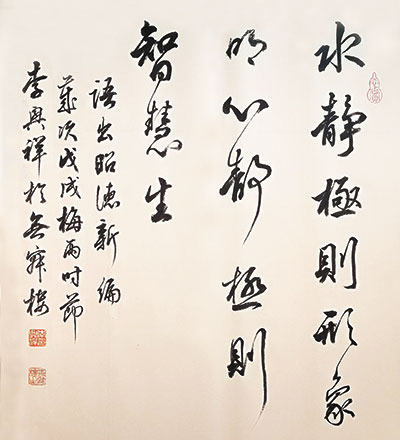 水靜極則形象
明心靜極則
智慧生
語出昭德新編
歲次戊戌梅雨時節
李興祥於無寐樓